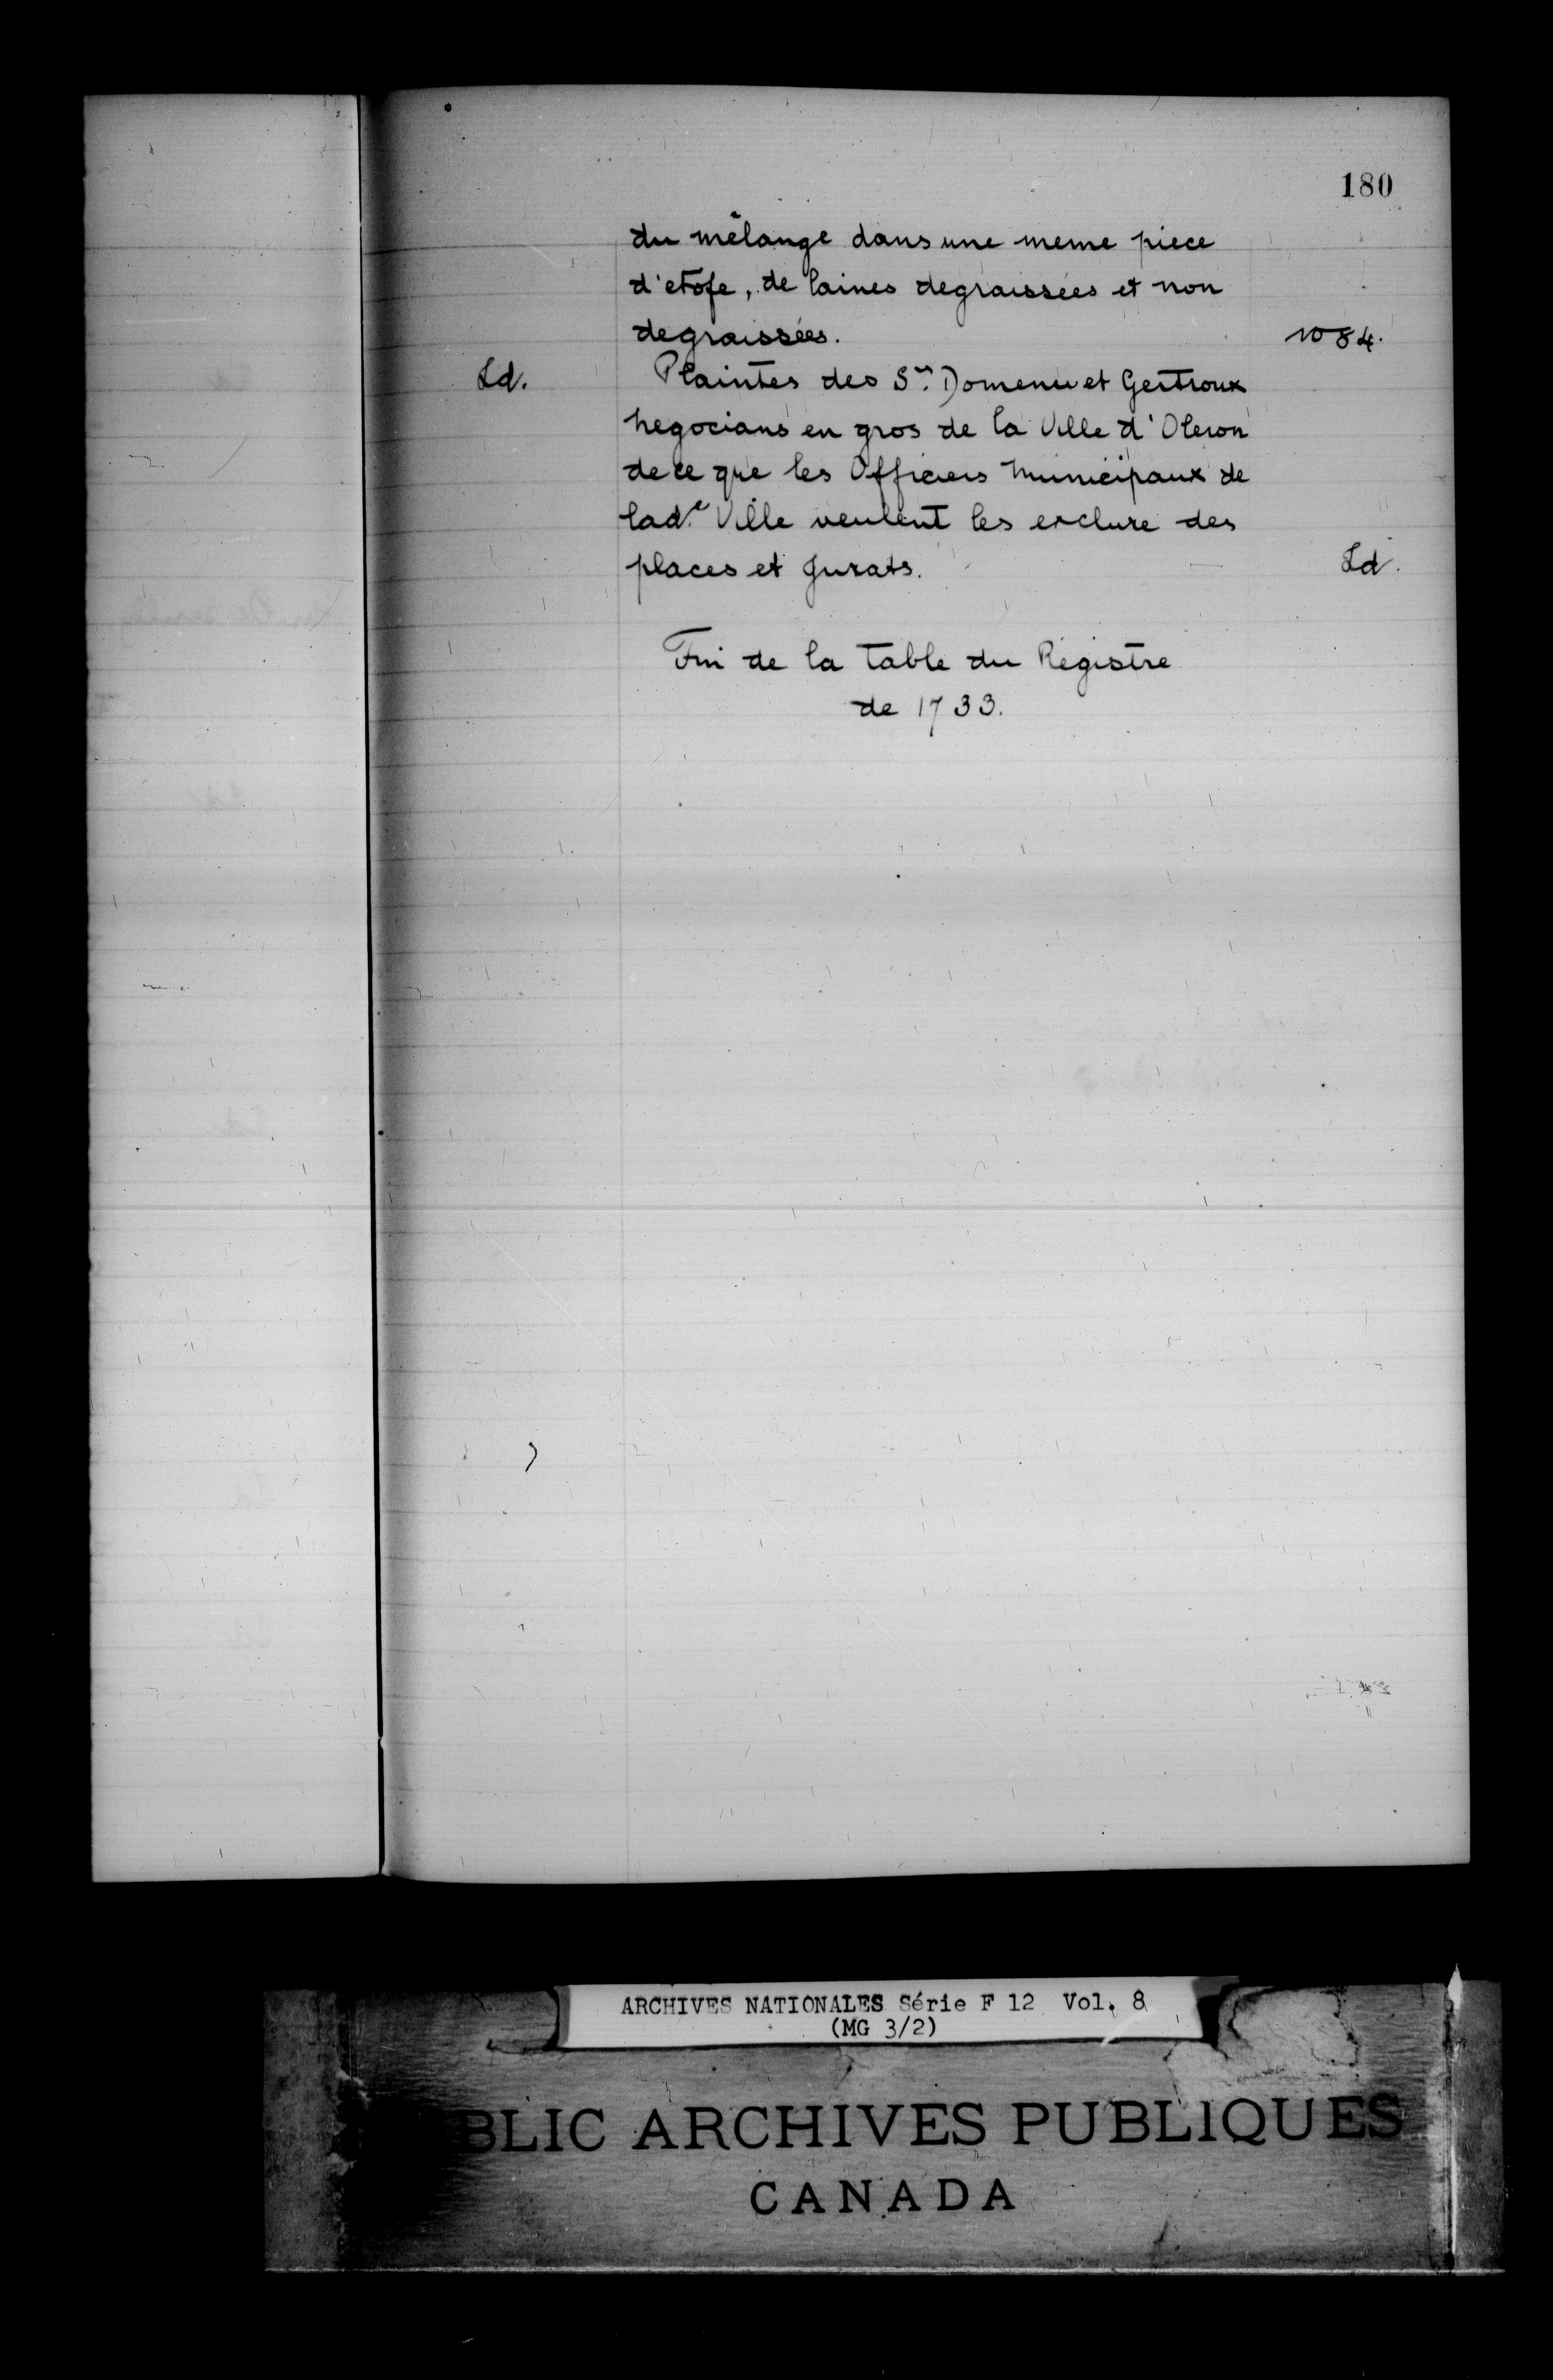 180
du mêlange dans une meme piece
d'etofe, de laines degraissées et non
degraissées. 1084.
Id. Plaintes des Srs. Domenu et Gertroux
negocians en gros de la Ville d'Oleron
de ce que les Officiers municipaux de
lad.e Ville veulent les exclure des
places et Jurats. Id.
Fin de la table du Registre
de 1733.
ARCHIVES NATIONALES Série F 12 Vol. 8
(MG 3/2)
BLIC ARCHIVES PUBLIQUES
CANADA